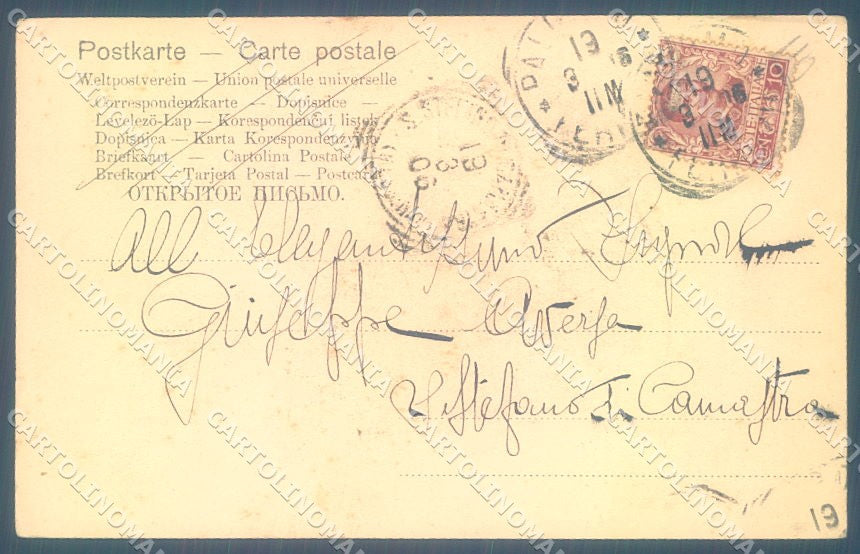 Postkarte — Carte postale
Weltpostverein — Union postale universelle
Correspondenzkarte — Dopisnice —
Levelező-Lap — Korespondenčni listek
Dopisnica — Karta Korespondenzyjna
Briefkaart — Cartolina Postale
Brefkort — Tarjeta Postal — Postcard
ОТКРЫТОЕ ПИСЬМО.
13
3
06
10
All Elegantissimo Signore
Giuseppe Aversa
S. Stefano di Camastra
13
CARTOLINOMANIA